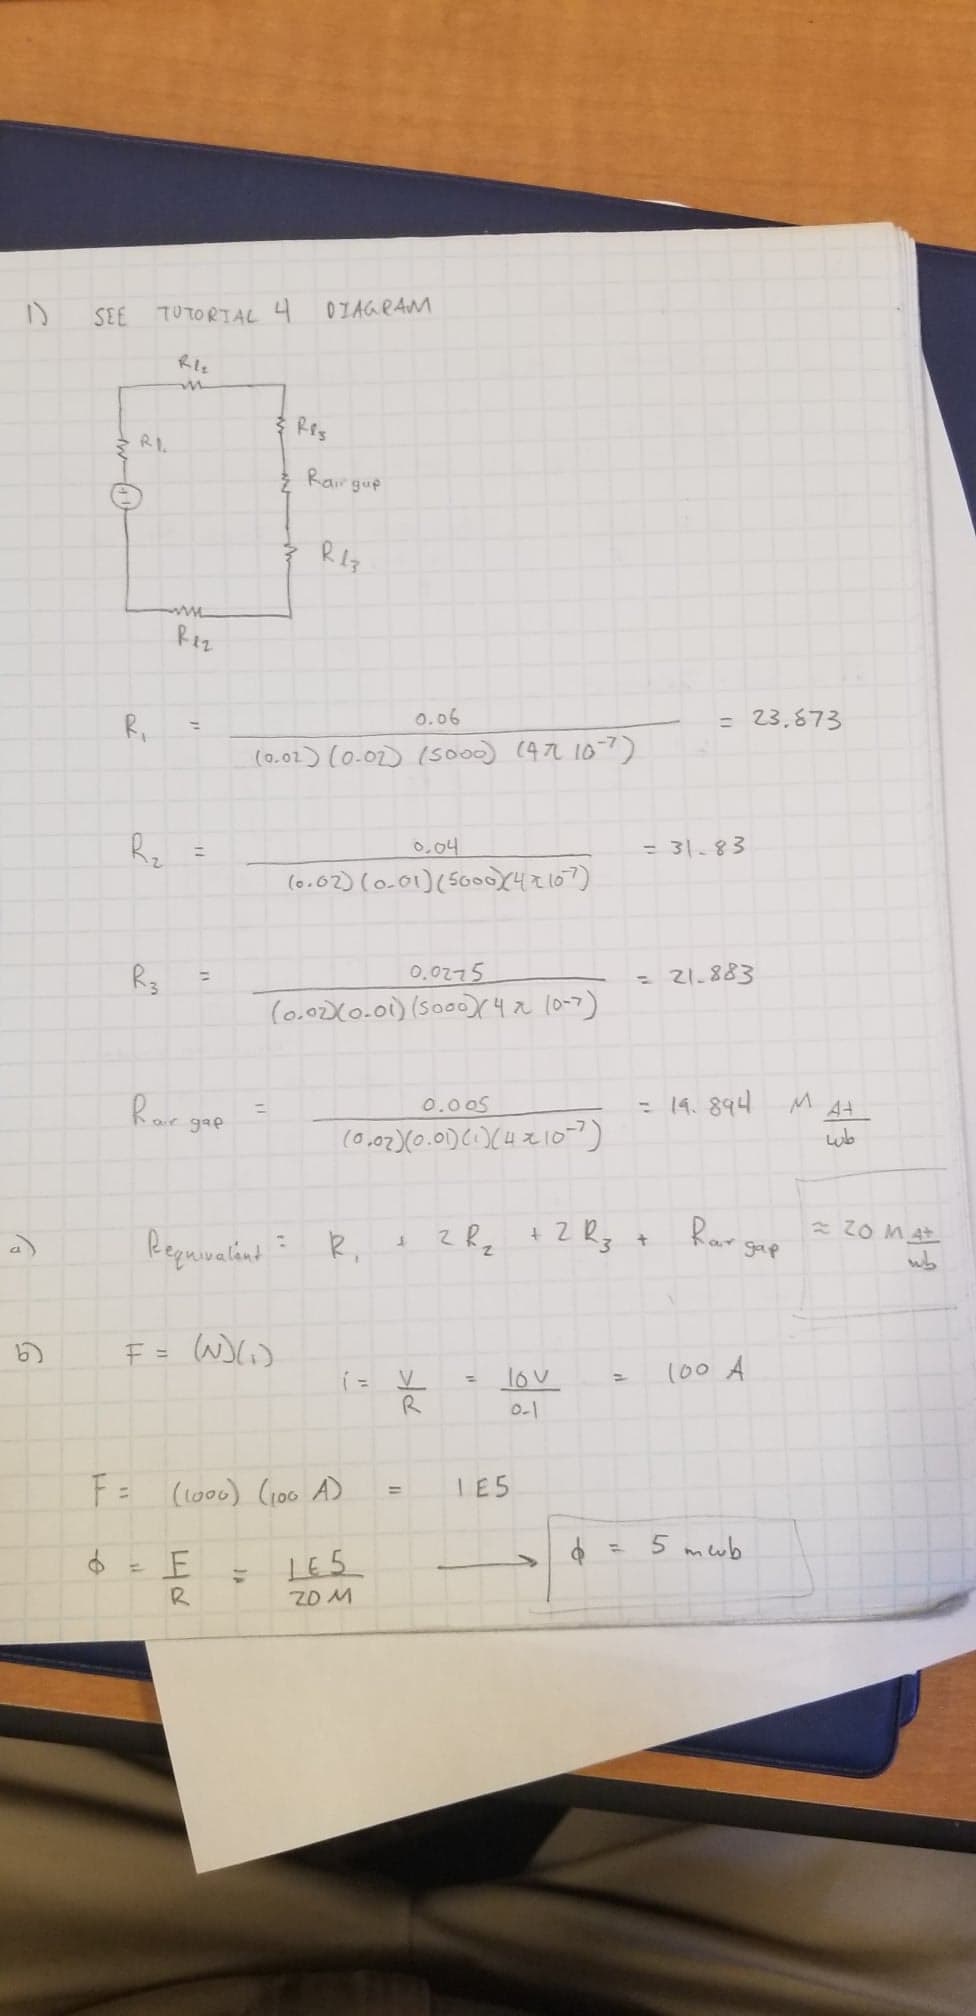 1) SEE TUTORIAL 4 DIAGRAM
Rl2
Rl1
Rl3
Rair gap
Rl3
Rl2
R1 = 0.06 / (0.02) (0.02) (5000) (4π 10^-7) = 23.873
R2 = 0.04 / (0.02) (0.01) (5000)(4π10^-7) = 31.83
R3 = 0.0275 / (0.02)(0.01) (5000)(4π 10^-7) = 21.883
Rair gap = 0.005 / (0.02)(0.01)(1)(4π10^-7) = 19.894 M At/wb
a) Requivalent = R1 + 2R2 + 2R3 + Rair gap ≈ 20 M At/wb
b) F = (N)(i)
i = V/R = 10V/0.1 = 100 A
F = (1000) (100 A) = 1E5
ϕ = F/R = 1E5/20M → ϕ = 5 mwb